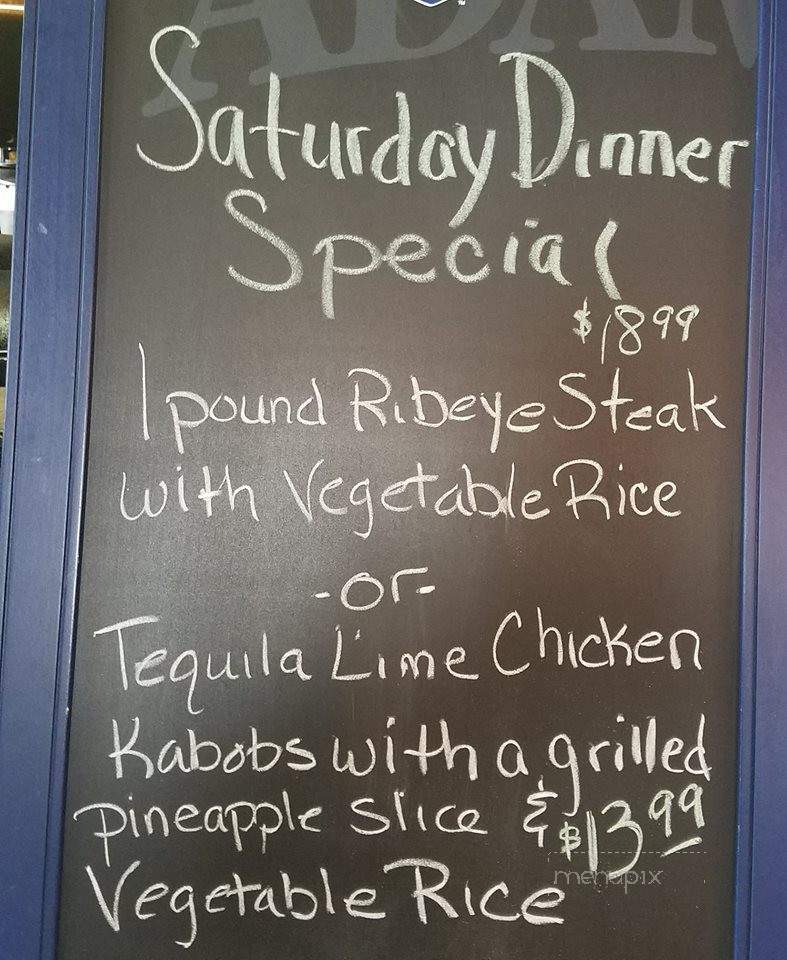 ADAM
Saturday Dinner
Special
$18.99
1 pound Ribeye Steak
with Vegetable Rice
-or-
Tequila Lime Chicken
Kabobs with a grilled
pineapple slice &
$13.99
Vegetable Rice
menupix